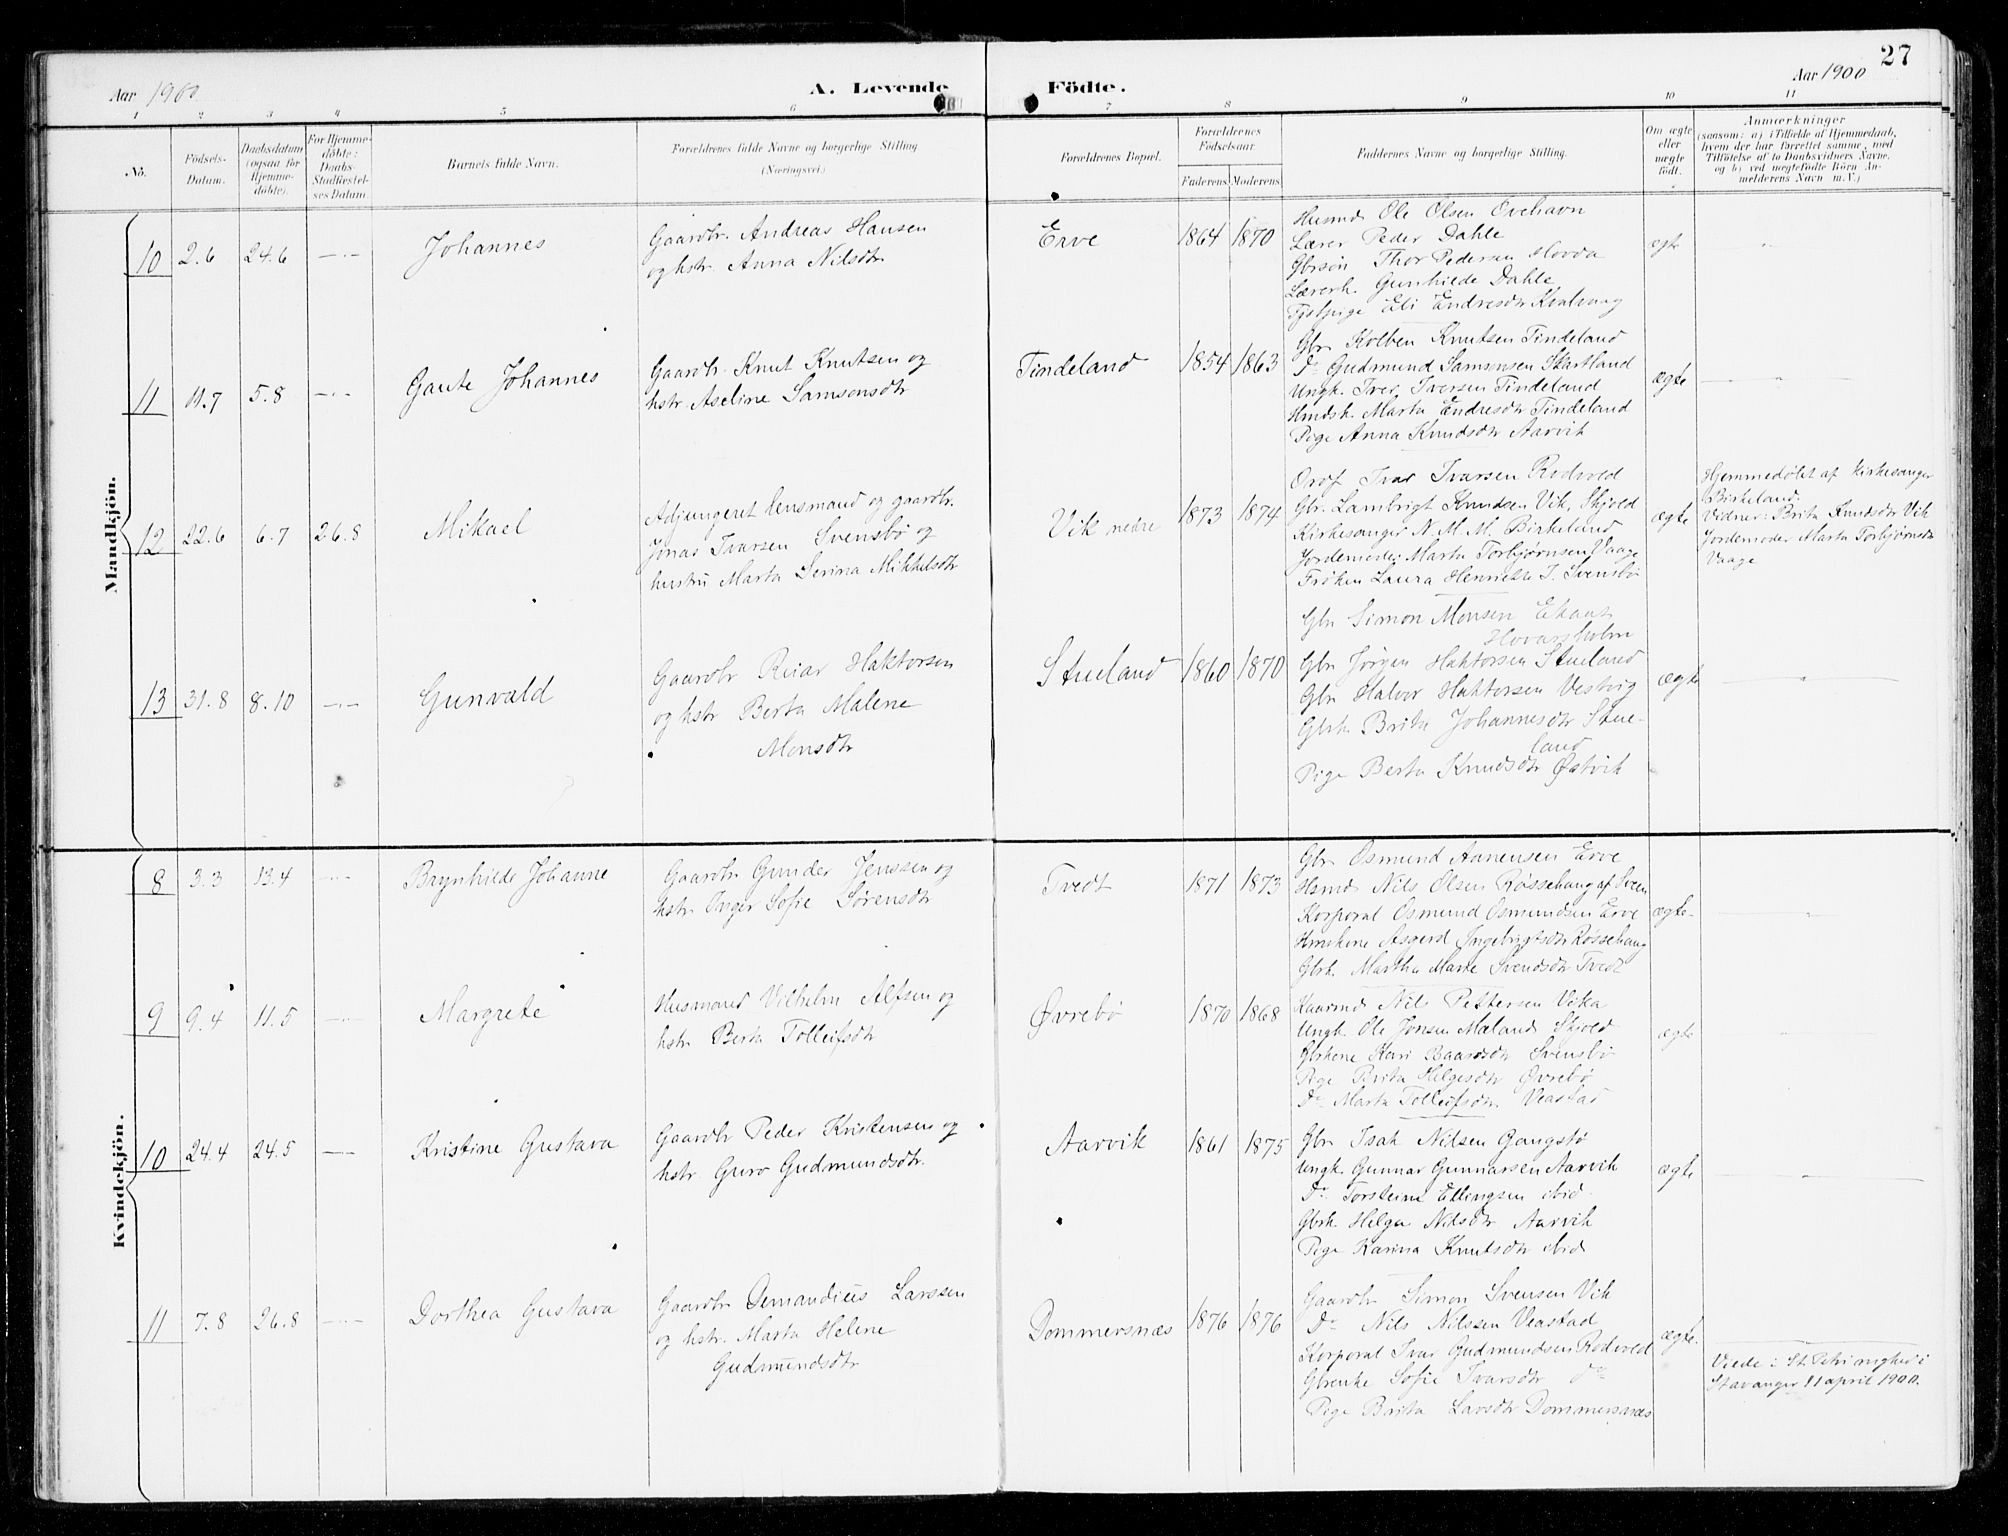 27
Aar 1900
A. Levende
Födte.
Aar 1900
1 2 3 4 5 6 7 8 9 10 11
No.
Födsels-
Datum.
Daabsdatum
(ogsaa for
Hjemme-
döbte).
For Hjemme-
döbte:
Daabs
Stadfæstel-
ses Datum.
Barnets fulde Navn.
Forældrenes fulde Navne og borgerlige Stilling
(Næringsvei.)
Forældrenes Bopæl.
Forældrenes
Födselsaar.
Faderens. Moderens.
Faddernes Navne og borgerlige Stilling.
Om ægte
eller
uægte
födt.
Anmærkninger
(saasom: a) i Tilfælde af Hjemmedaab,
hvem der har forrettet samme, med
Tilföielse af to Daabsvidners Navne,
og b) ved uægtefödte Börn An-
melderens Navn m. V.)
Mandkjön.
10 2.6 24.6
Johannes
Gaardbr. Andreas Hansen
og hstr. Anna Nilsdtr
Erve
1864 1870
Husmd Ole Olsen Ovehavn
Lærer Peder Dahle
Gbrsön Thor Pedersen Hovda
Lærerh. Gunhilde Dahle
Tjstpige Eli Endresdtr Kvalvaag
ægt
11 11.7 5.8
Gaute Johannes
Gaardbr. Knut Knutsen og
hstr. Aseline Samsonsdtr
Tindeland
1854 1863
Gbr. Kolben Knutsen Tindeland
Do Gudmund Samsonsen Skartland
Ungk. Iver Iversen Tindeland
Hmdsk. Marta Endresdtr Tindeland
Pige Anna Knudsdtr Aarvik
ægte
12 22.6 6.7 26.8
Mikael
Adjungeret lensmand og gaardbr.
Jonas Ivarsen Svensbø og
hustru Marta Serina Mikkelsdtr
Vik nedre
1873 1874
Ivar Ivarsen Rodvold
Gbr. Lambrigt Knudsen Vik, Skjold
Kirkesanger N. M. M. Birkeland
Jordemoder Marta Torbjørnsen Vaage
Frøken Laura Henriette J. Svensbø
ægte
Hjemmedøbt af Kirkesanger
Birkeland.
Vidner: Brita Knudsdtr Vik
Jordemoder Marta Torbjørnsdtr
Vaage
13 31.8 8.10
Gunvald
Gaardbr Roar Haktorsen
og hstr Berta Malene
Monsdtr
Stueland
1860 1870
Gbr Simon Monsen
Hovarsholm
Gbr Jørgen Haktorsen Stueland
Gbr Halvor Haktorsen Vestvig
Gbrk Brita Johannesdtr Stue-
land
Pige Berta Knudsdtr Østvik
ægte
Kvindekjön.
8 3.3 13.4
Brynhilde Johanne
Gaardbr Gunder Jenssen og
hstr Inger Sofie Sørensdtr
Tvedt
1871 1873
Gbr Osmund Aanensen Erve
Hsmd Nils Olsen Røssehaug af Sven
Korporal Osmund Osmundsen Erve
Hmdkone Asgerd Ingebrigtsdtr Røssehaug
Gbrk. Martha Marie Svendsdtr Tvedt
ægte
9 9.4 11.5
Margrete
Husmand Vilhelm Alfsen og
hstr Berta Tolleifsdtr
Øvrebø
1870 1868
Kaarmd Nils Pettersen Vika
Ungk. Ole Jonsen Mæland Skjold
Gbrkone Kari Baardsdtr Svensbø
Pige Brita Helgesdtr Øvrebø
Do Marta Tolleifsdtr. Veastad
ægte
10 24.4 24.5
Kristine Gustava
Gaardbr Peder Kristensen og
hstr. Guro Gudmundsdtr.
Aarvik
1861 1875
Gbr Isak Nilsen Gangstø
Ungk. Gunnar Gunnarsen Aarvik
Do Torsteine Ellingsen ibid.
Gbrk. Helga Nilsdtr Aarvik
Pige Karina Knutsdtr ibid
ægte
11 7.8 26.8
Dorthea Gustava
Gaardbr Demandius Larssen
og hstr. Marta Helene
Gudmundsdtr
Dommersnæs
1876 1876
Gaardbr Simon Svensen Vik
Do Nils Nilssen Veastad
Korporal Ivar Gudmundsen Rodvold
Gbrenke Sofie Ivarsdtr do
Pige Brita Larsdtr Dommersnæs
ægte.
Viede i St. Petri mghed i
Stavanger 11 april 1900.